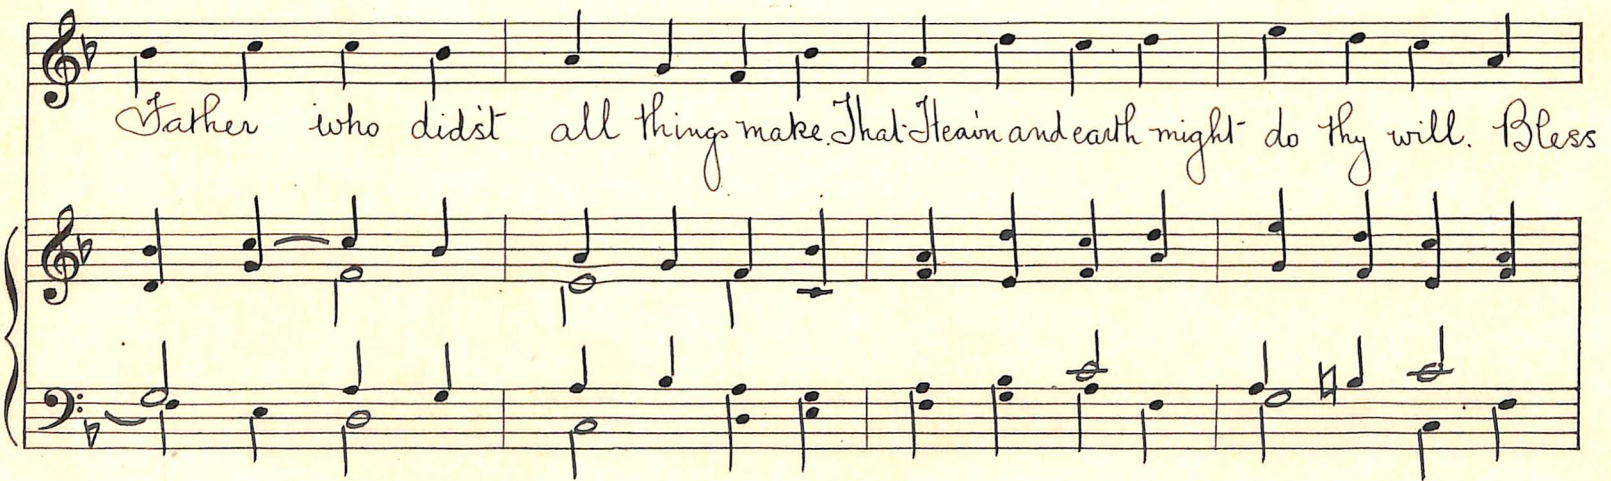 Father who did'st all things make. That Heav'n and earth might do thy will. Bless